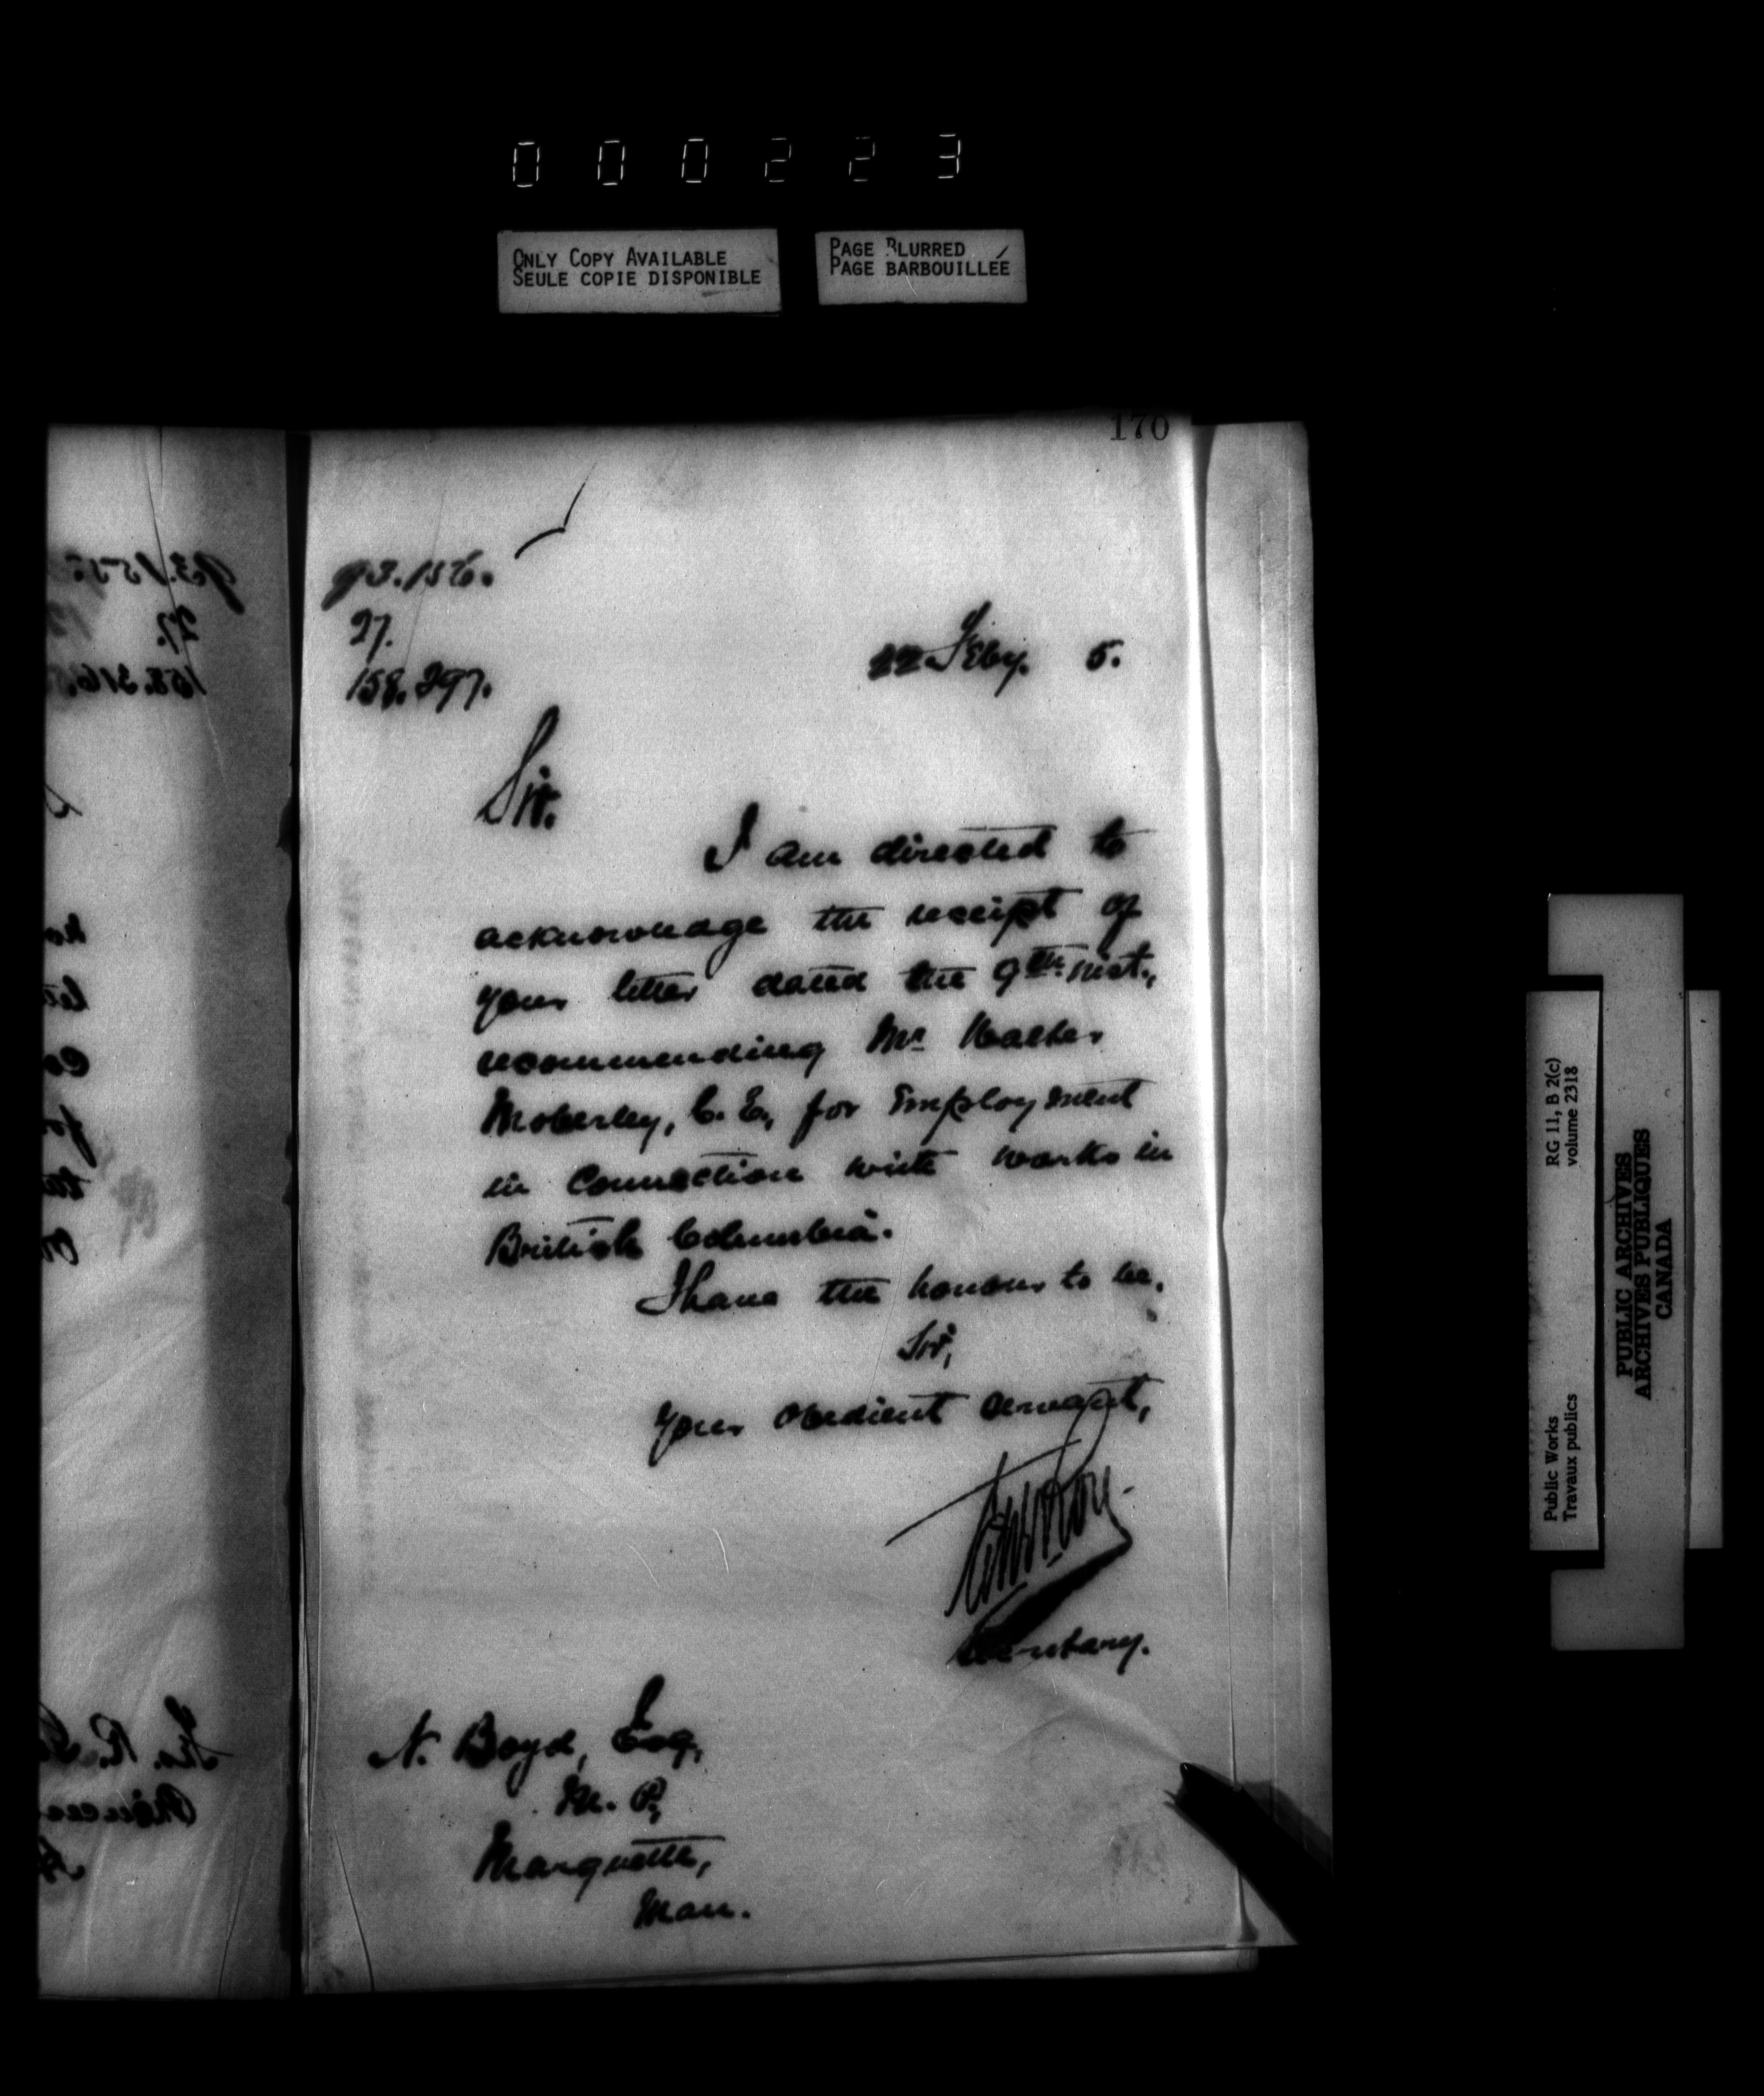 000223
ONLY COPY AVAILABLE
SEULE COPIE DISPONIBLE
PAGE BLURRED
PAGE BARBOUILLÉE
170
93.156.
27.
158.297.
22 Feby. 5.
Sir.
I am directed to
acknowledge the receipt of
your letter dated the 9th. inst.,
recommending Mr Walter
Moberley, C. E., for Employment
in Connection with works in
British Columbia.
I have the honour to be,
Sir,
Your obedient servant,
Roy.
Secretary.
N. Boyd, Esq,
M. P.,
Marquette,
Man.
RG 11, B 2(c)
volume 2318
Public Works
Travaux publics
PUBLIC ARCHIVES
ARCHIVES PUBLIQUES
CANADA